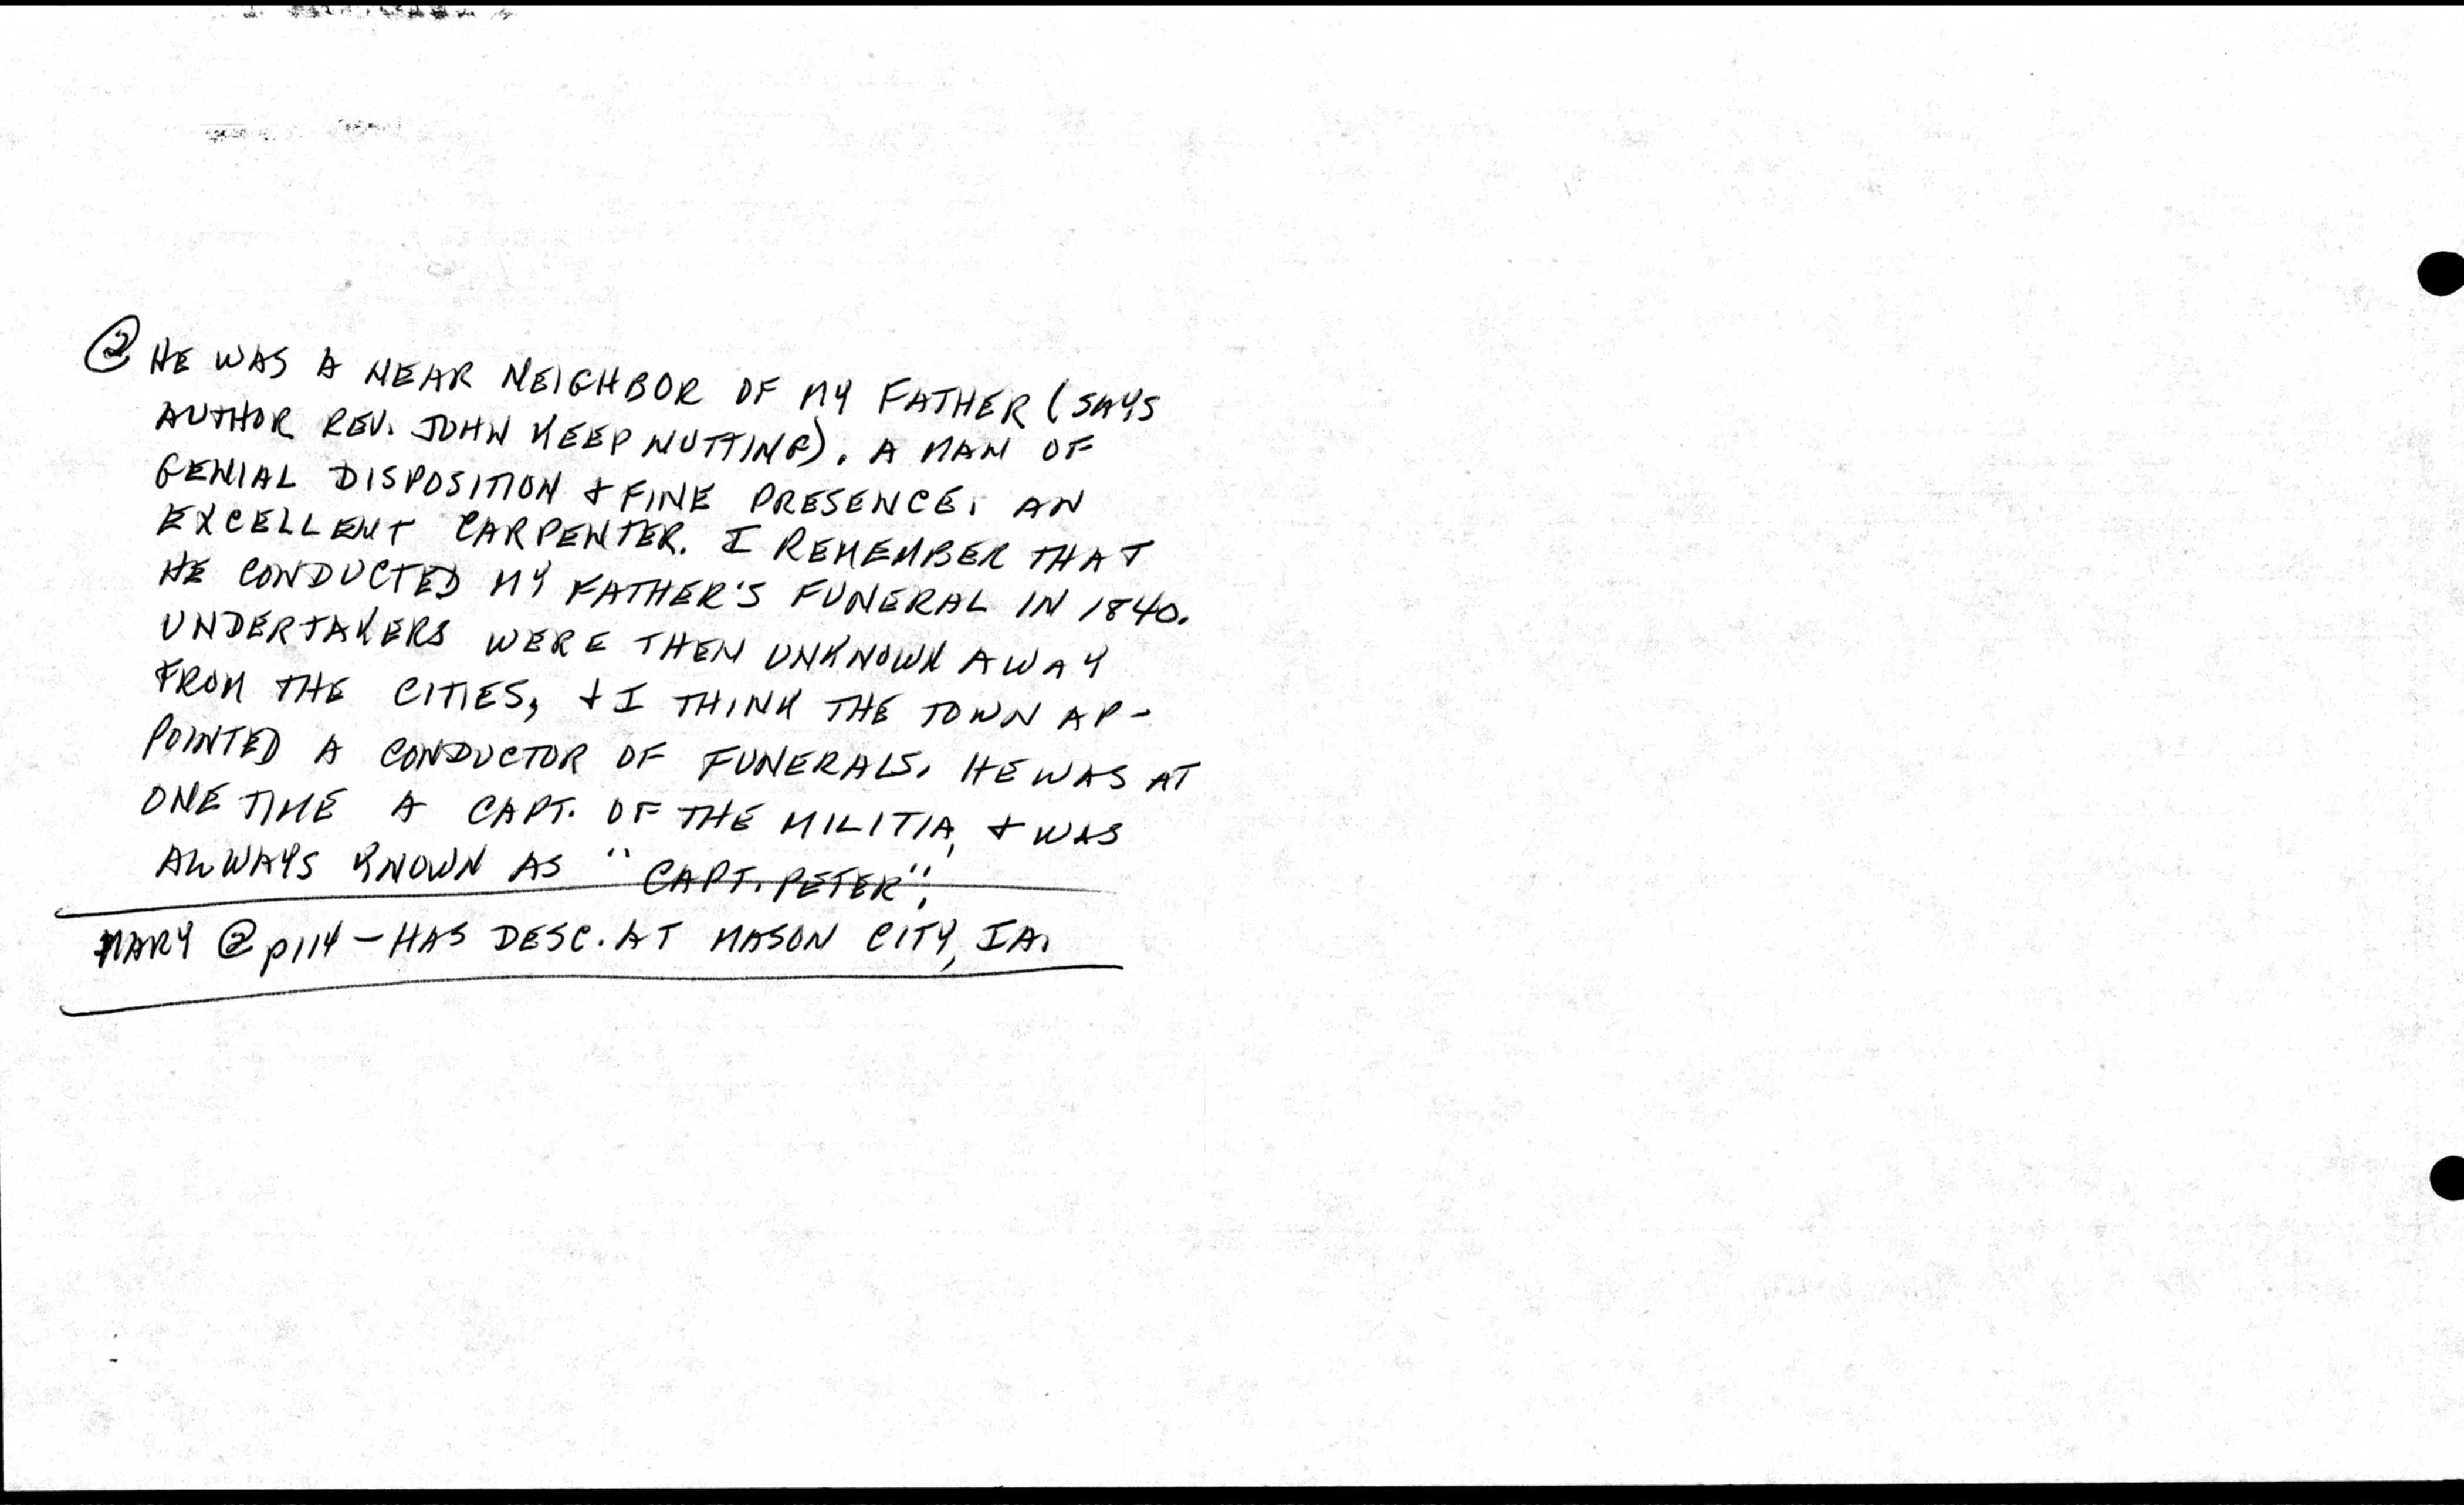 ② HE WAS A NEAR NEIGHBOR OF MY FATHER (SAYS
AUTHOR REV. JOHN KEEP NUTTING). A MAN OF
GENIAL DISPOSITION & FINE PRESENCE. AN
EXCELLENT CARPENTER. I REMEMBER THAT
HE CONDUCTED MY FATHER'S FUNERAL IN 1840.
UNDERTAKERS WERE THEN UNKNOWN AWAY
FROM THE CITIES, & I THINK THE TOWN AP-
POINTED A CONDUCTOR OF FUNERALS. HE WAS AT
ONE TIME A CAPT. OF THE MILITIA, & WAS
ALWAYS KNOWN AS "CAPT. PETER".
MARY ② p114 - HAS DESC. AT MASON CITY, IA.